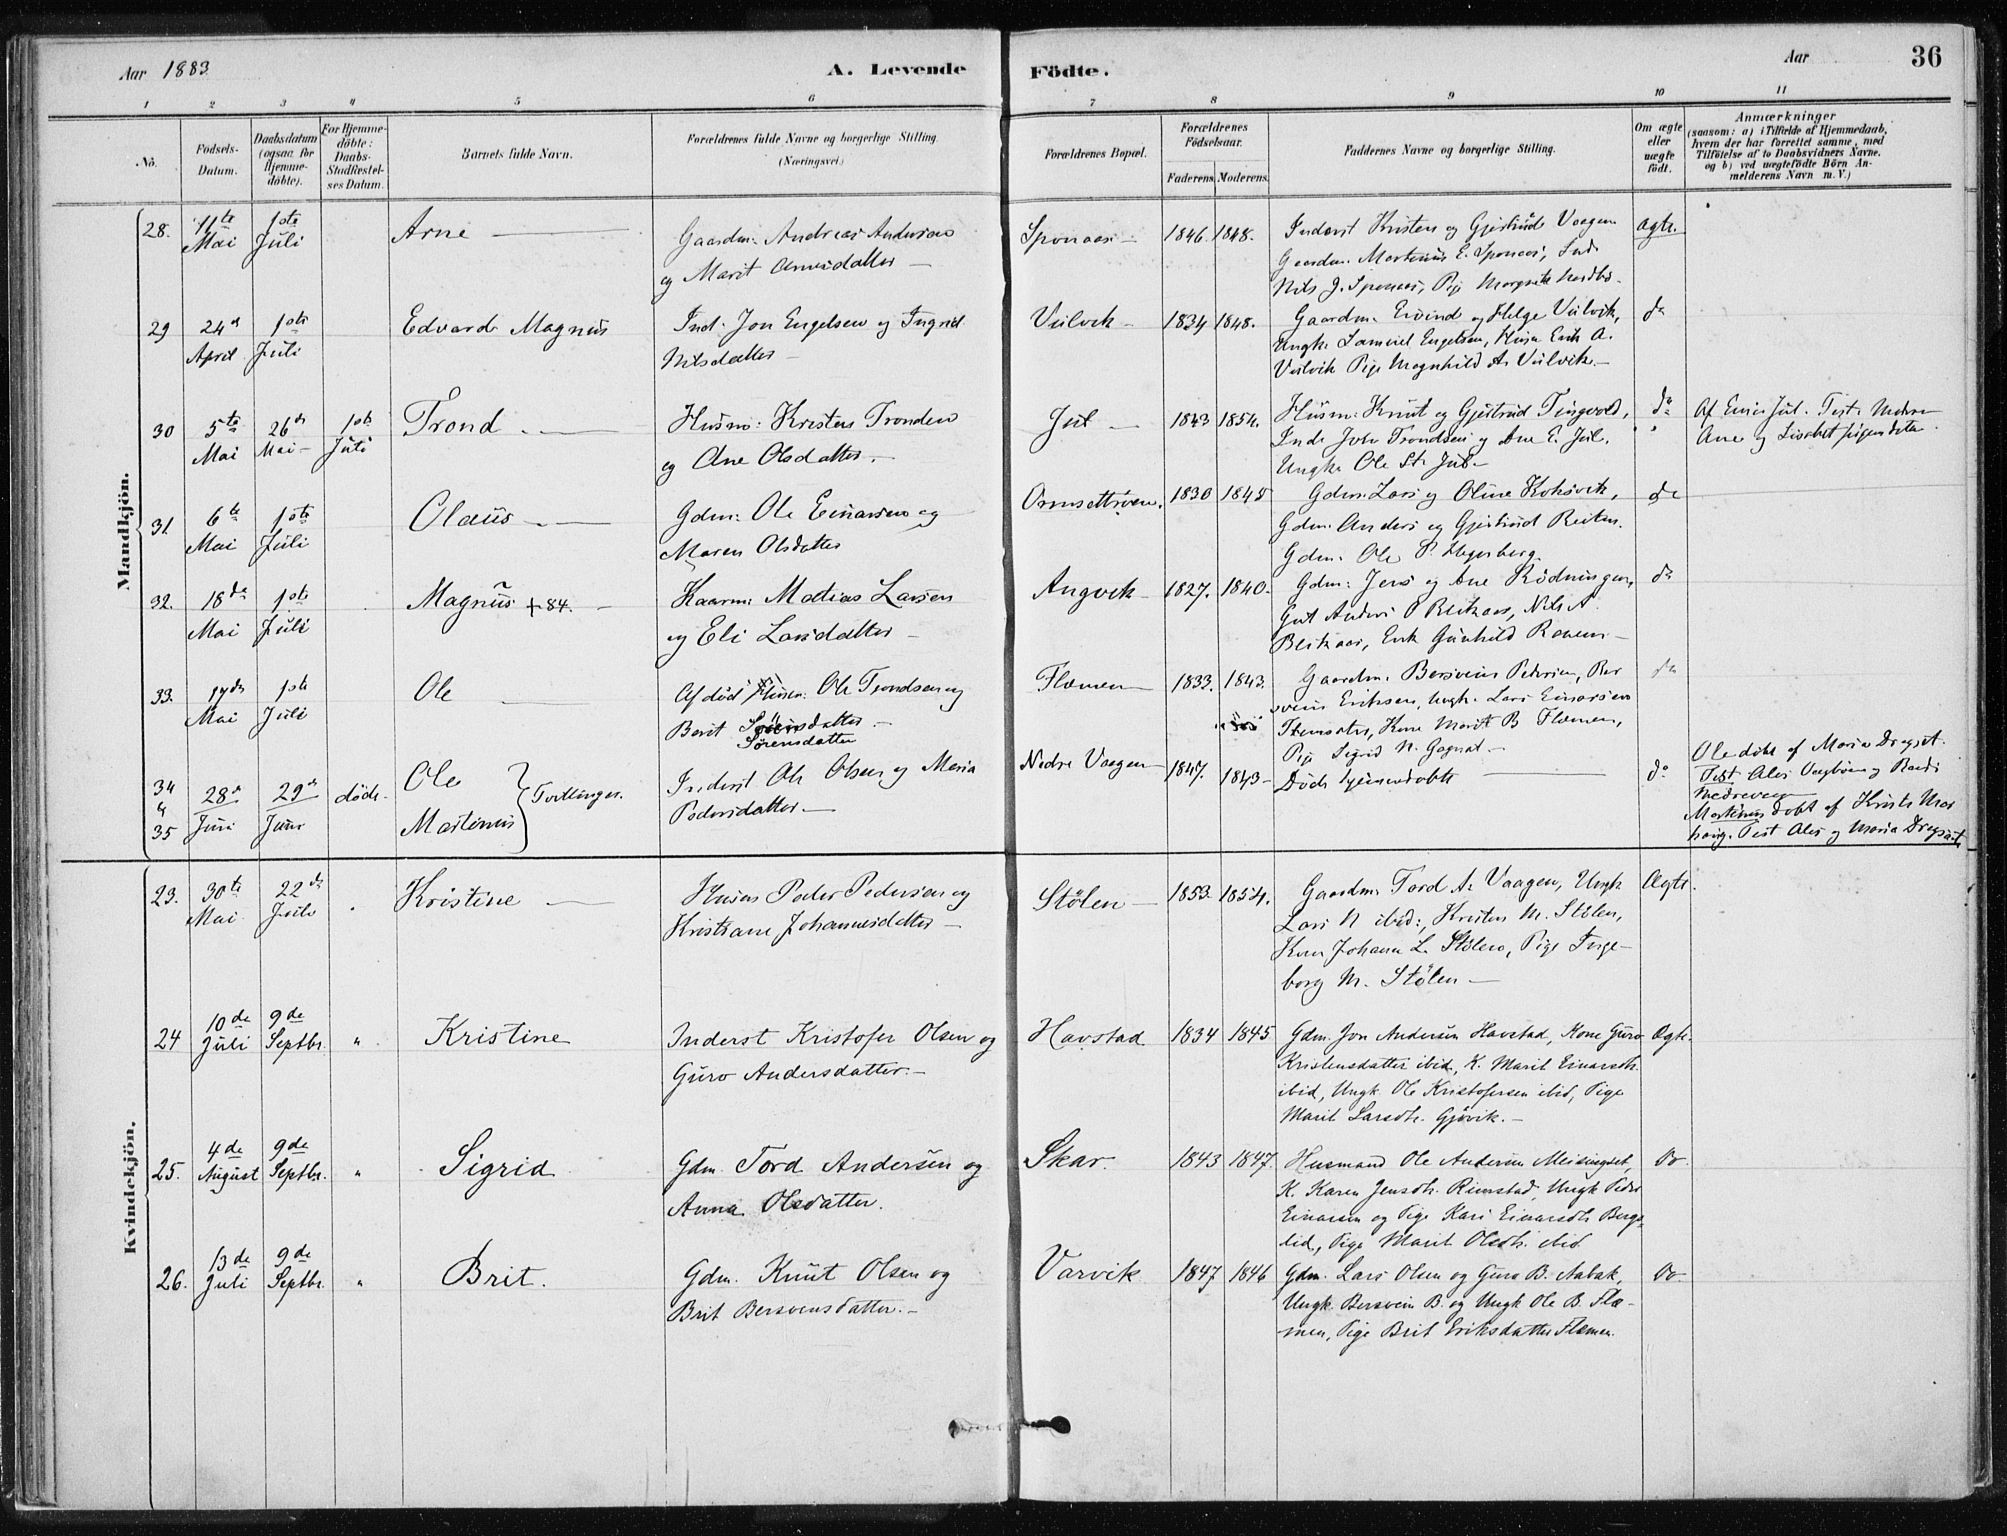 Aar 1883.
A. Levende Födte.
Aar
36
1 2 3 4 5 6 7 8 9 10 11
No.
Födsels-Datum.
Daabsdatum (ogsaa for Hjemme-döbte).
For Hjemme-döbte: Daabs-Stadfæstel-ses Datum.
Barnets fulde Navn.
Forældrenes fulde Navne og borgerlige Stilling. (Næringsvei.)
Forældrenes Bopæl.
Forældrenes Födselsaar.
Faderens. Moderens.
Faddernes Navne og borgerlige Stilling.
Om ægte eller uægte födt.
Anmærkninger
(saasom: a) i Tilfælde af Hjemmedaab,
hvem der har forrettet samme, med
Tilföielse af to Daabsvidners Navne.
og b) ved uægtefödte Börn An-
melderens Navn m. V.)
Mandkjön.
28. 11te Mai 1ste Juli Arne
Gaardm: Andreas Andersen
og Marit Arnesdatter
Sponaas 1846. 1848.
Inderst Kristen og Gjertrud Vaagen
Gaardm. Martinus E. Sponaas, Ind
Nils J. Sponaas, Pige Margrete
ægte.
29 24de April 1ste Juli Edvard Magnus
Ind. Jon Engelsen og Ingrid
Nilsdatter
Vulvik 1834 1848.
Gaardm. Eivind og Helge Vulvik,
Ungk. Samuel Engelsen, Erik A.
Vulvik Pige Magnhild A. Vulvik.
do
30 5te Mai 26de Mai 1ste Juli Trond
Husm: Kristen Trondsen
og Ane Olsdatter.
Jul 1843 1854.
Husm: Knut og Gjertrud Tingvold,
Inds John Trondsen og Ane E. Jul,
Ungk. Ole St. Jul
do
Af Jul. Test.
Ane og Lisabet
31. 6te Mai 1ste Juli Olaus
Gdm: Ole Einarsen og
Maren Olsdatter
1830 1845
Gdm: Lars og Oline Koksvik,
Gdm. Anders og Gjertrud Reiten.
Gdm: Ole P. Hegerberg.
do
32. 18de Mai 1ste Juli Magnus +84.
Kaarm: Matias Larsen
og Eli Larsdatter
Angvik 1827. 1840.
Gdm: Jens og Ane Rödningen,
Gut Anders O Bleikaas, Nils A.
Bleikaas, Enk Gunhild
do
33. 17de Mai 1ste Juli Ole
Afdöd Husm: Ole Trondsen og
Berit
Sörensdatter
Flemen 1833. 1843.
Gaardm. Bersvein Pedersen, Ber
svein Eriksen, Ungk. Lars Einarsen
Kone Marit B Flemen,
Pige Sigrid N.
do
34 & 35 28de Juni 29de Juni döde.
Ole
Martinus
Tvillinger.
Inderst Ole Olsen og Maria
Pedersdatter
Nedre Vaagen 1847. 1843
Döde hjemmedöbte
do
Ole döbt af Maria Dragset.
Test Ales
Nedrevaagen
Martinus döbt af Kirsti
Test Ales og Maria Dragset
Kvindekjön.
23. 30te Mai 22de Julo Kristine
Husm Peder Pedersen og
Kristiane Johannesdatter
Stölen 1853. 1854.
Gaardm. Tord A. Vaagen, Ungk
Lars N ibid:, Kristen M. Stölen,
Kone Johanna L. Stölen, Pige Inge-
borg M. Stölen
Ægte.
24 10de Juli 9de Septbr. " Kristine
Inderst Kristofer Olsen og
Guro Andersdatter.
Havstad 1834 1845
Gdm. Jon Andersen Havstad, Kone Guro
Kristensdatter ibid, K. Marit Einarsdtr.
ibid, Ungk. Ole Kristofersen ibid, Pige
Marit Larsdtr. Gjövik.
Ægte.
25. 4de August 9de Septbr. " Sigrid
Gdm. Tord Andersen og
Anna Olsdatter.
Skar. 1843 1847.
Husmand Ole Andersen Meisingset,
K. Karen Jensdtr. Rimstad, Ungk Peder
Einarsen og Pige Kari Einarsdtr Berge-
lid, Pige Marit Olsdtr. ibid
Do
26. 13de Juli 9de Septbr. " Brit.
Gdm. Knut Olsen og
Brit Bersvensdatter.
Varvik 1847 1846
Gdm. Lars Olsen og Guro B. Aabak,
Ungk. Bersvein B. og Ungk Ole B. Flæ-
men, Pige Brit Eriksdatter Flæmen.
Do